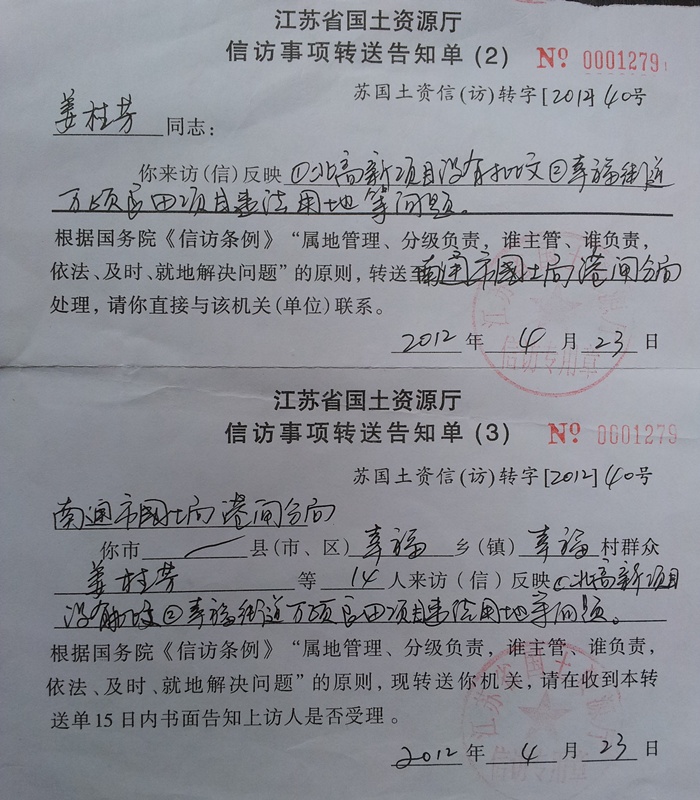 江苏省国土资源厅
信访事项转送告知单(2) Nº 0001279
苏国土资信(访)转字[2012]40号
姜桂芳同志：
你来访(信)反映①北高新项目没有批文②幸福街道
万顷良田项目违法用地等问题。
根据国务院《信访条例》“属地管理、分级负责，谁主管、谁负责，
依法、及时、就地解决问题”的原则，转送至南通市国土局港闸分局
处理，请你直接与该机关(单位)联系。
2012年4月23日
江苏省国土资源厅
信访专用章
江苏省国土资源厅
信访事项转送告知单(3) Nº 0001279
苏国土资信(访)转字[2012]40号
南通市国土局港闸分局
你市县(市、区)幸福乡(镇)幸福村群众
姜桂芳等14人来访(信)反映①北高新项目
没有批文②幸福街道万顷良田项目违法用地等问题。
根据国务院《信访条例》“属地管理、分级负责，谁主管、谁负责，
依法、及时、就地解决问题”的原则，现转送你机关，请在收到本转
送单15日内书面告知上访人是否受理。
2012年4月23日
江苏省国土资源厅
信访专用章